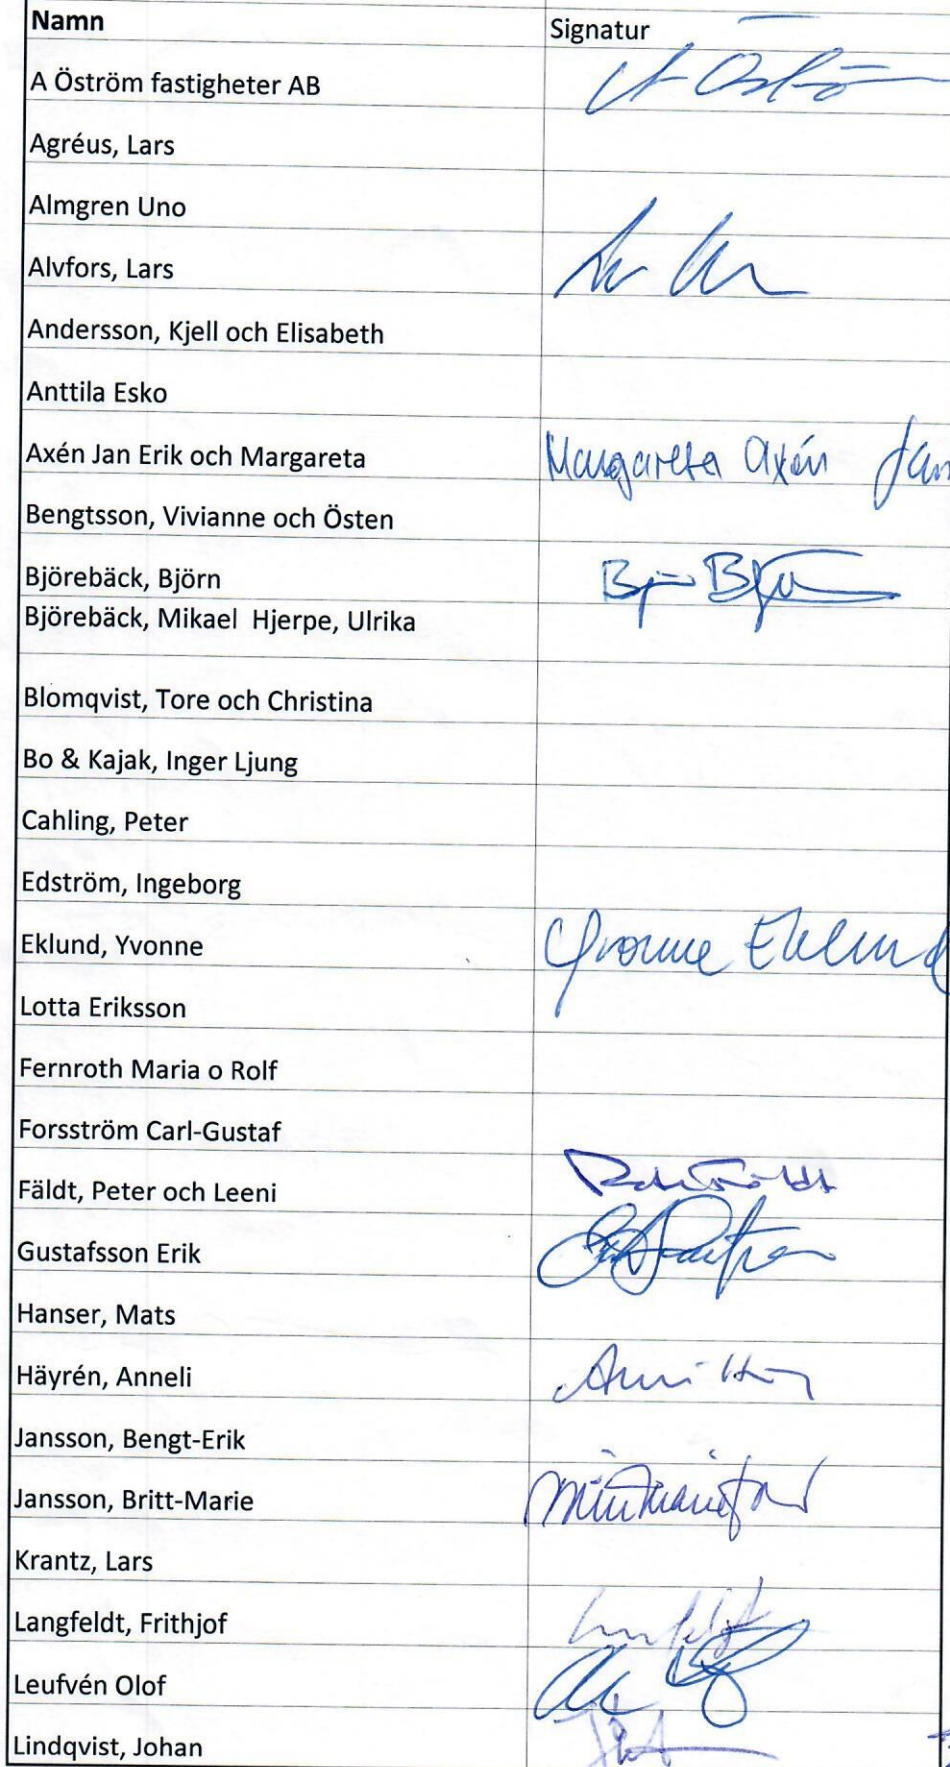 Namn Signatur
A Öström fastigheter AB
Agréus, Lars
Almgren Uno
Alvfors, Lars
Andersson, Kjell och Elisabeth
Anttila Esko
Axén Jan Erik och Margareta Margareta Axén Jan
Bengtsson, Vivianne och Östen
Björebäck, Björn
Björebäck, Mikael Hjerpe, Ulrika
Blomqvist, Tore och Christina
Bo & Kajak, Inger Ljung
Cahling, Peter
Edström, Ingeborg
Eklund, Yvonne Yvonne Eklund
Lotta Eriksson
Fernroth Maria o Rolf
Forsström Carl-Gustaf
Fäldt, Peter och Leeni
Gustafsson Erik
Hanser, Mats
Häyrén, Anneli
Jansson, Bengt-Erik
Jansson, Britt-Marie
Krantz, Lars
Langfeldt, Frithjof
Leufvén Olof
Lindqvist, Johan